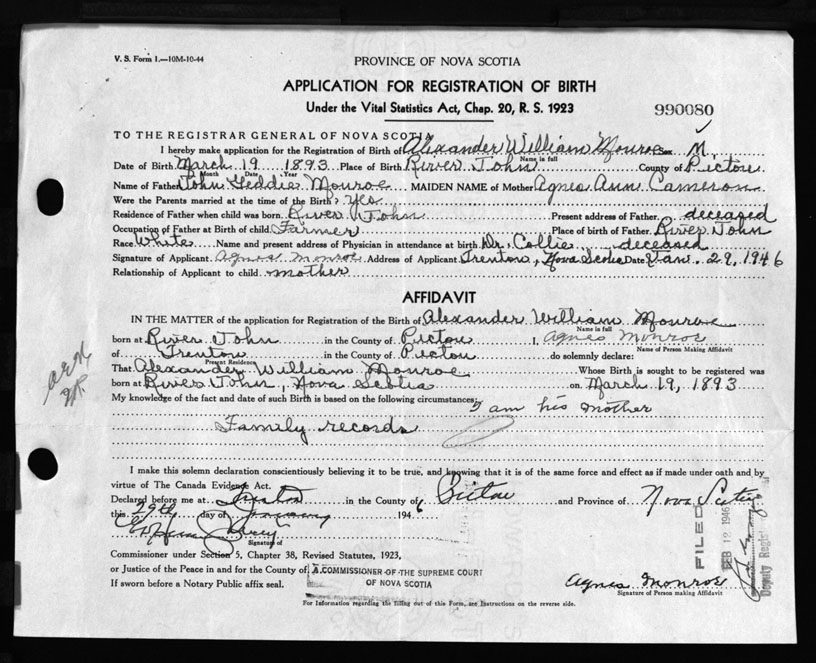 V. S. Form 1.—10M-10-44
PROVINCE OF NOVA SCOTIA
APPLICATION FOR REGISTRATION OF BIRTH
Under the Vital Statistics Act, Chap. 20, R. S. 1923
990080
TO THE REGISTRAR GENERAL OF NOVA SCOTIA
I hereby make application for the Registration of Birth of Alexander William Monroe Sex M.
Name in full
Date of Birth March 19 1893 Place of Birth River John County of Pictou
Month Date Year
Name of Father John Geddie Monroe MAIDEN NAME of Mother Agnes Ann Cameron
Were the Parents married at the time of the Birth? Yes
Residence of Father when child was born River John Present address of Father deceased
Occupation of Father at Birth of child Farmer Place of birth of Father River John
Race White Name and present address of Physician in attendance at birth Dr. Collie deceased
Signature of Applicant Agnes Monroe Address of Applicant Trenton, Nova Scotia Date Jan. 29, 1946
Relationship of Applicant to child mother
AFFIDAVIT
IN THE MATTER of the application for Registration of the Birth of Alexander William Monroe
Name in full
born at River John in the County of Pictou I, Agnes Monroe
Name of Person Making Affidavit
of Trenton in the County of Pictou do solemnly declare:
Present Residence
That Alexander William Monroe Whose Birth is sought to be registered was
born at River John, Nova Scotia on March 19, 1893
My knowledge of the fact and date of such Birth is based on the following circumstances: I am his mother
Family records
I make this solemn declaration conscientiously believing it to be true, and knowing that it is of the same force and effect as if made under oath and by
virtue of The Canada Evidence Act.
Declared before me at Trenton in the County of Pictou and Province of Nova Scotia
this 29th day of January 1946
Signature of
Commissioner under Section 5, Chapter 38, Revised Statutes, 1923,
or Justice of the Peace in and for the County of
A COMMISSIONER OF THE SUPREME COURT
OF NOVA SCOTIA
If sworn before a Notary Public affix seal.
FILED
FEB 12 1946
Deputy Registrar
Agnes Monroe
Signature of Person making Affidavit
For Information regarding the filling out of this Form, see Instructions on the reverse side.